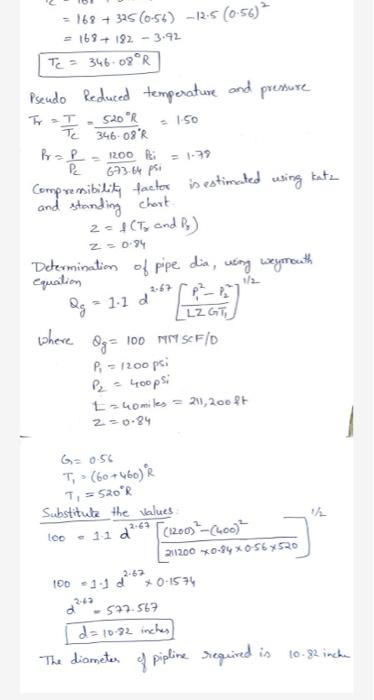 = 168 + 325 (0.56) - 12.5 (0.56)²
= 168 + 182 - 3.92
Tc = 346.08°R
Pseudo Reduced temperature and pressure
Tr = T/Tc = 520°R/346.08°R = 1.50
Pr = P/Pc = 1200 Psi/673.64 psi = 1.78
Compressibility factor is estimated using katz
and standing chart.
z = f (Tr and Pr)
z = 0.84
Determination of pipe dia, using weymouth
equation
Qg = 1.1 d^2.67 [P₁² - P₂²/LZGT₁]^1/2
where Qg = 100 MMSCF/D
P₁ = 1200 psi
P₂ = 400 psi
L = 40 miles = 211,200 ft
z = 0.84
G = 0.56
T₁ = (60+460)°R
T₁ = 520°R
Substitute the values:
100 = 1.1 d^2.67 [(1200)² - (400)²/211200 x 0.84 x 0.56 x 520]^1/2
100 = 1.1 d^2.67 x 0.1574
d^2.67 = 577.567
d = 10.82 inches
The diameter of pipline required is 10.82 inche